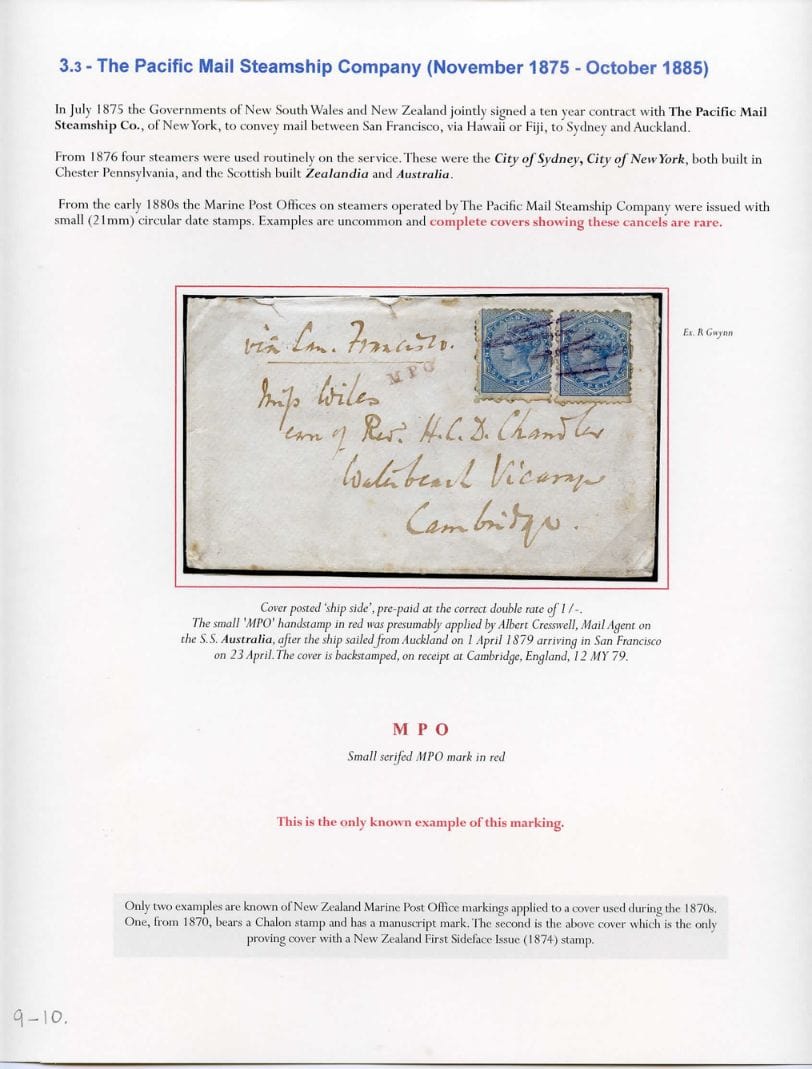 3.3 - The Pacific Mail Steamship Company (November 1875 - October 1885)
In July 1875 the Governments of New South Wales and New Zealand jointly signed a ten year contract with The Pacific Mail
Steamship Co., of New York, to convey mail between San Francisco, via Hawaii or Fiji, to Sydney and Auckland.
From 1876 four steamers were used routinely on the service. These were the City of Sydney, City of New York, both built in
Chester Pennsylvania, and the Scottish built Zealandia and Australia.
From the early 1880s the Marine Post Offices on steamers operated by The Pacific Mail Steamship Company were issued with
small (21mm) circular date stamps. Examples are uncommon and complete covers showing these cancels are rare.
Ex. R Gwynn
via San. Francisco.
MPO
Miss Wiles
care of Rev. H. C. D. Chandler
Waterbeach Vicarage
Cambridge.
Cover posted 'ship side', pre-paid at the correct double rate of 1/-.
The small 'MPO' handstamp in red was presumably applied by Albert Cresswell, Mail Agent on
the S.S. Australia, after the ship sailed from Auckland on 1 April 1879 arriving in San Francisco
on 23 April. The cover is backstamped, on receipt at Cambridge, England, 12 MY 79.
M P O
Small serifed MPO mark in red
This is the only known example of this marking.
Only two examples are known of New Zealand Marine Post Office markings applied to a cover used during the 1870s.
One, from 1870, bears a Chalon stamp and has a manuscript mark. The second is the above cover which is the only
proving cover with a New Zealand First Sideface Issue (1874) stamp.
9-10.